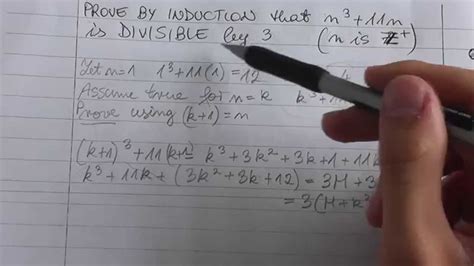 PROVE BY INDUCTION that n³+11n
is DIVISIBLE by 3 (n is Z⁺)
Let n=1 1³+11(1)=12
Assume true for n=k k³+11
Prove using (k+1)=n
(k+1)³+11(k+1= k³+3k²+3k+1+11k
k³+11k+(3k²+3k+12)=3M+3
=3(M+k²